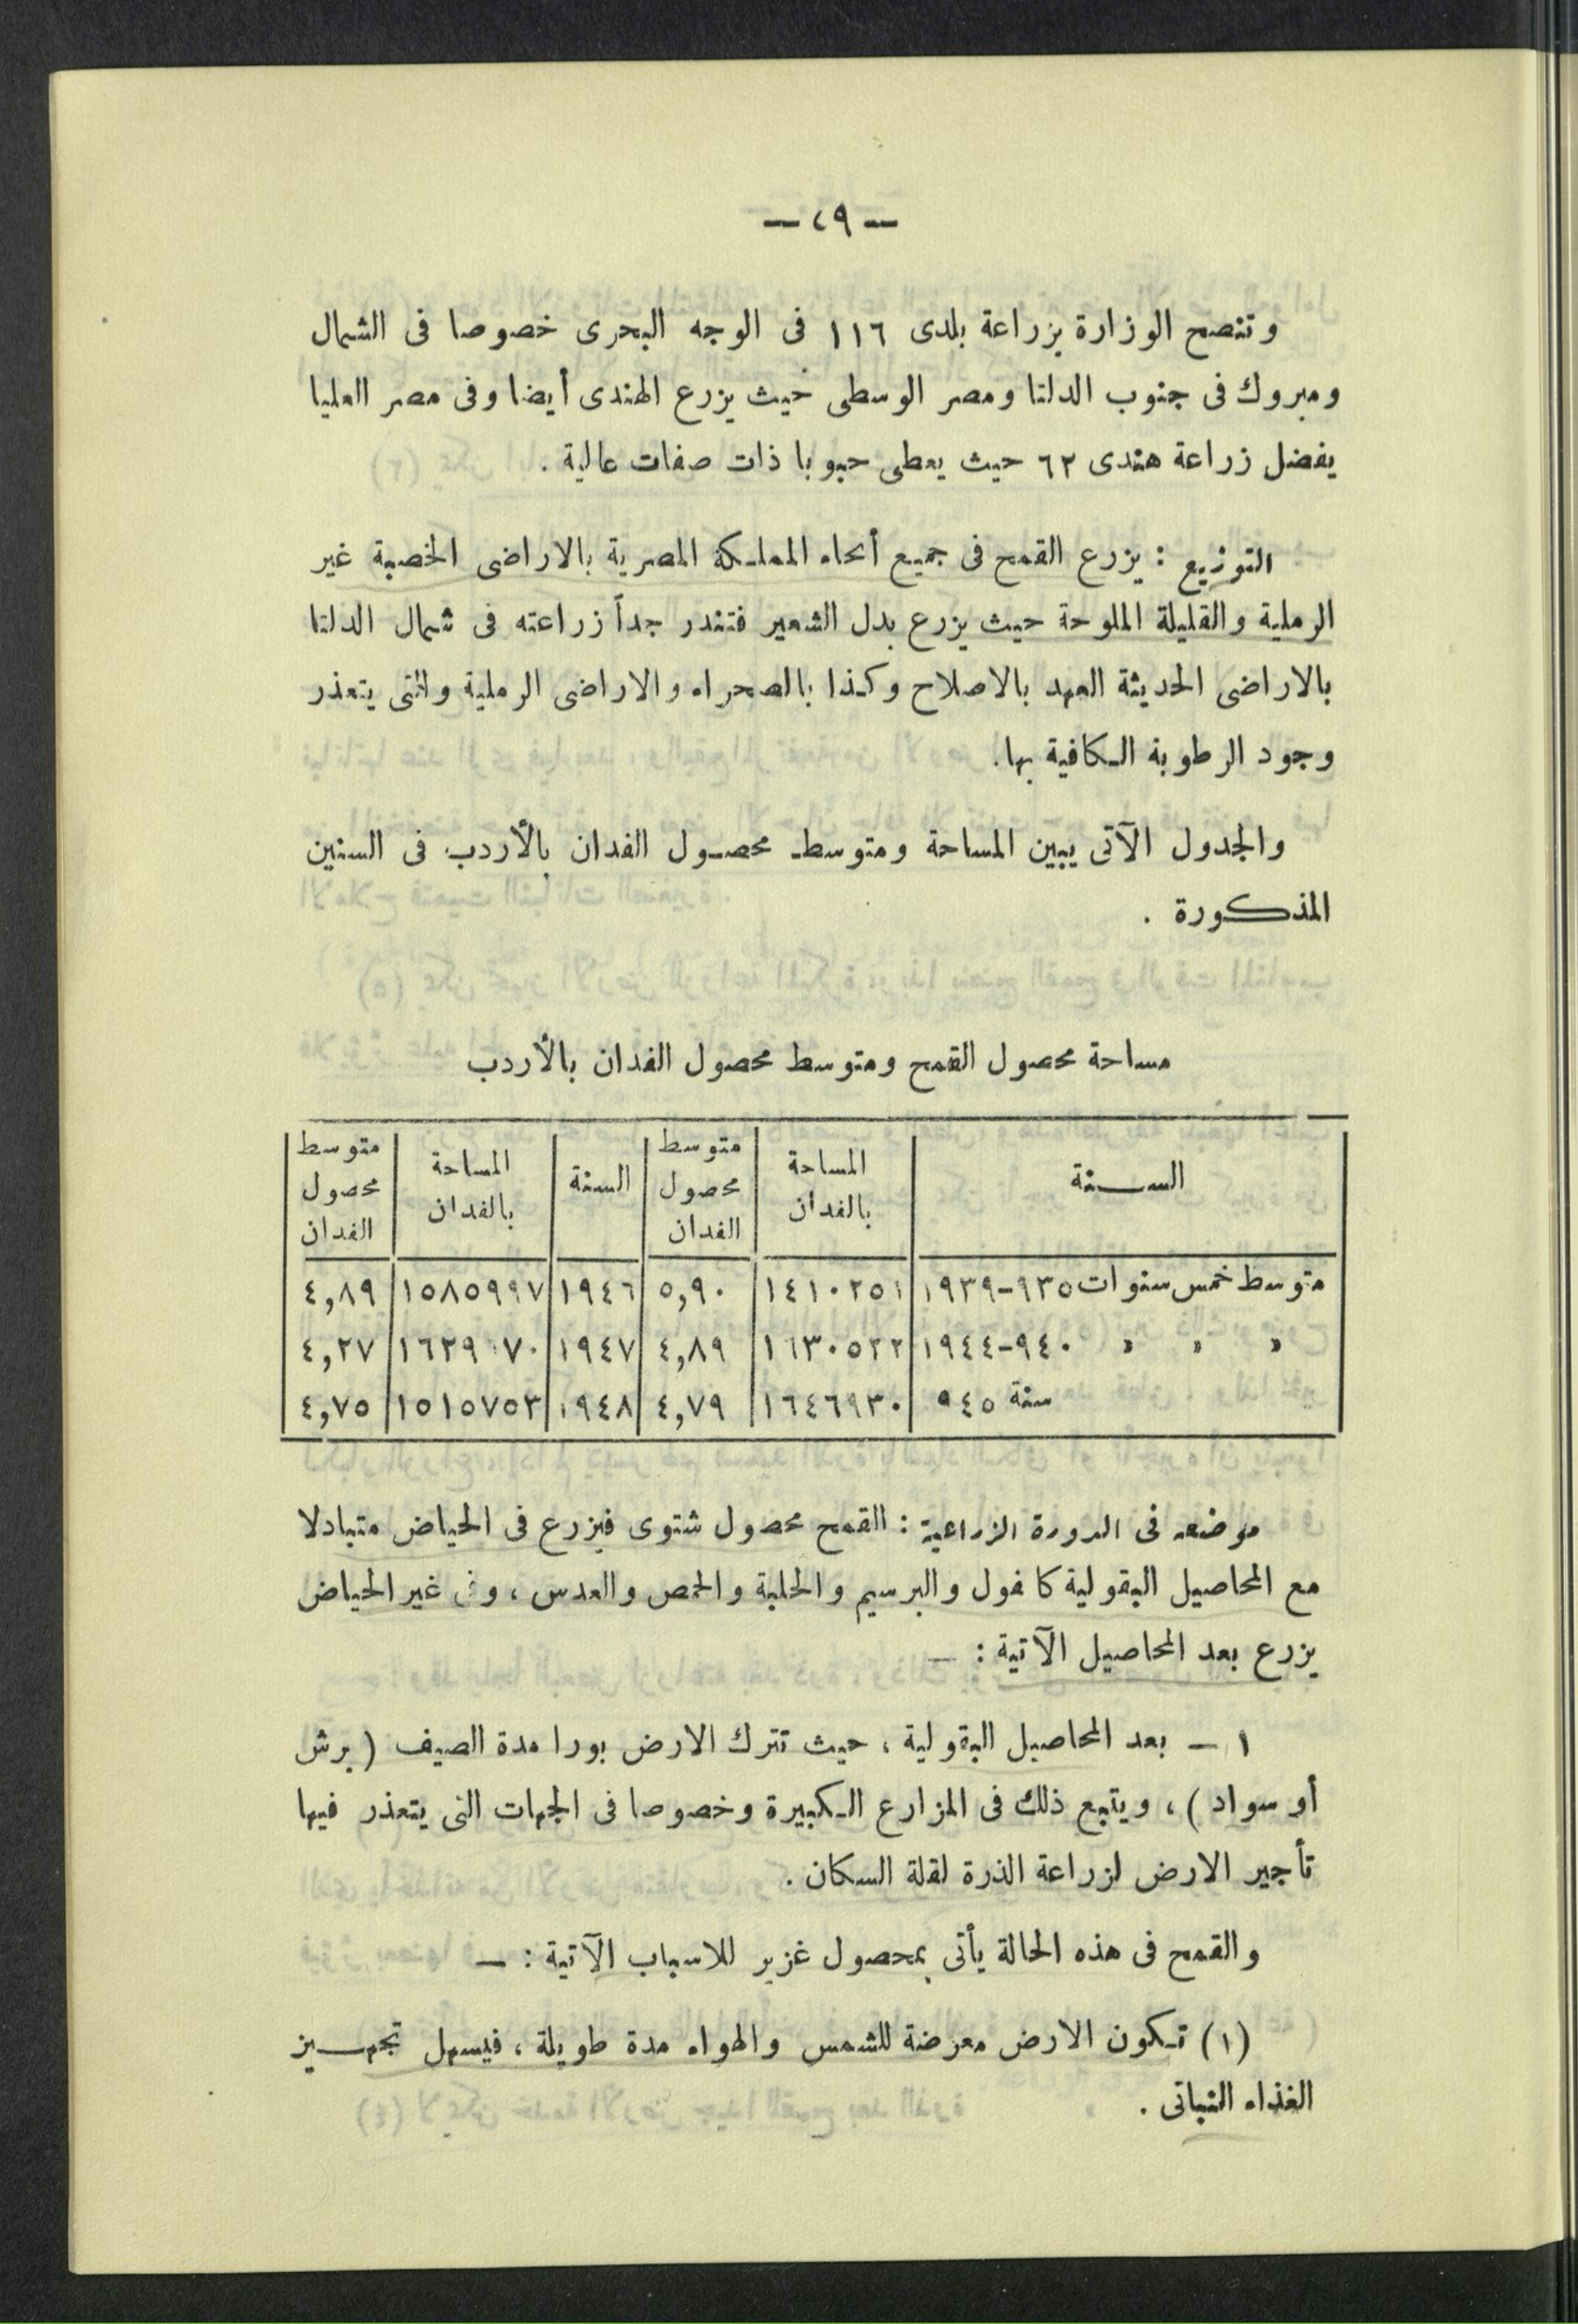 — ٢٩ —
وتنصح الوزارة بزراعة بلدى ١١٦ فى الوجه البحرى خصوصا فى الشمال
ومبروك فى جنوب الدلتا ومصر الوسطى حيث يزرع الهندى أيضا وفى مصر العليا
يفضل زراعة هندى ٦٢ حيث يعطى حبوبا ذات صفات عالية .
التوزيع : يزرع القمح فى جميع أنحاء المملكة المصرية بالاراضى الخصبة غير
الرملية والقليلة الملوحة حيث يزرع بدل الشعير فتندر جداً زراعته فى شمال الدلتا
بالاراضى الحديثة العهد بالاصلاح وكذا بالصحراء والاراضى الرملية والتى يتعذر
وجود الرطوبة الكافية بها.
والجدول الآتى يبين المساحة ومتوسط محصول الفدان بالأردب فى السنين
المذكورة .
مساحة محصول القمح ومتوسط محصول الفدان بالأردب
السنة | المساحة بالفدان | متوسط محصول الفدان | السنة | المساحة بالفدان | متوسط محصول الفدان
متوسط خمس سنوات ٩٣٥-١٩٣٩ | ١٤١٠٢٥١ | ٥,٩٠ | ١٩٤٦ | ١٥٨٥٩٩٧ | ٤,٨٩
» » » ٩٤٠-١٩٤٤ | ١٦٣٠٥٢٢ | ٤,٨٩ | ١٩٤٧ | ١٦٢٩ ٧٠ | ٤,٢٧
سنة ٩٤٥ | ١٦٤٦٩٣٠ | ٤,٧٩ | ١٩٤٨ | ١٥١٥٧٥٣ | ٤,٧٥
موضعه فى الدورة الزراعية : القمح محصول شتوى فيزرع فى الحياض متبادلا
مع المحاصيل البقولية كافول والبرسيم والحلبة والحمص والعدس ، وفى غير الحياض
يزرع بعد المحاصيل الآتية : —
١ — بعد المحاصيل البقولية ، حيث تترك الارض بورا مدة الصيف ( برش
أو سواد ) ، ويتبع ذلك فى المزارع الكبيرة وخصوصا فى الجهات التى يتعذر فيها
تأجير الارض لزراعة الذرة لقلة السكان .
والقمح فى هذه الحالة يأتى بمحصول غزير للاسباب الآتية : —
(١) تكون الارض معرضة للشمس والهواء مدة طويلة ، فيسهل تجهيز
الغذاء النباتى .